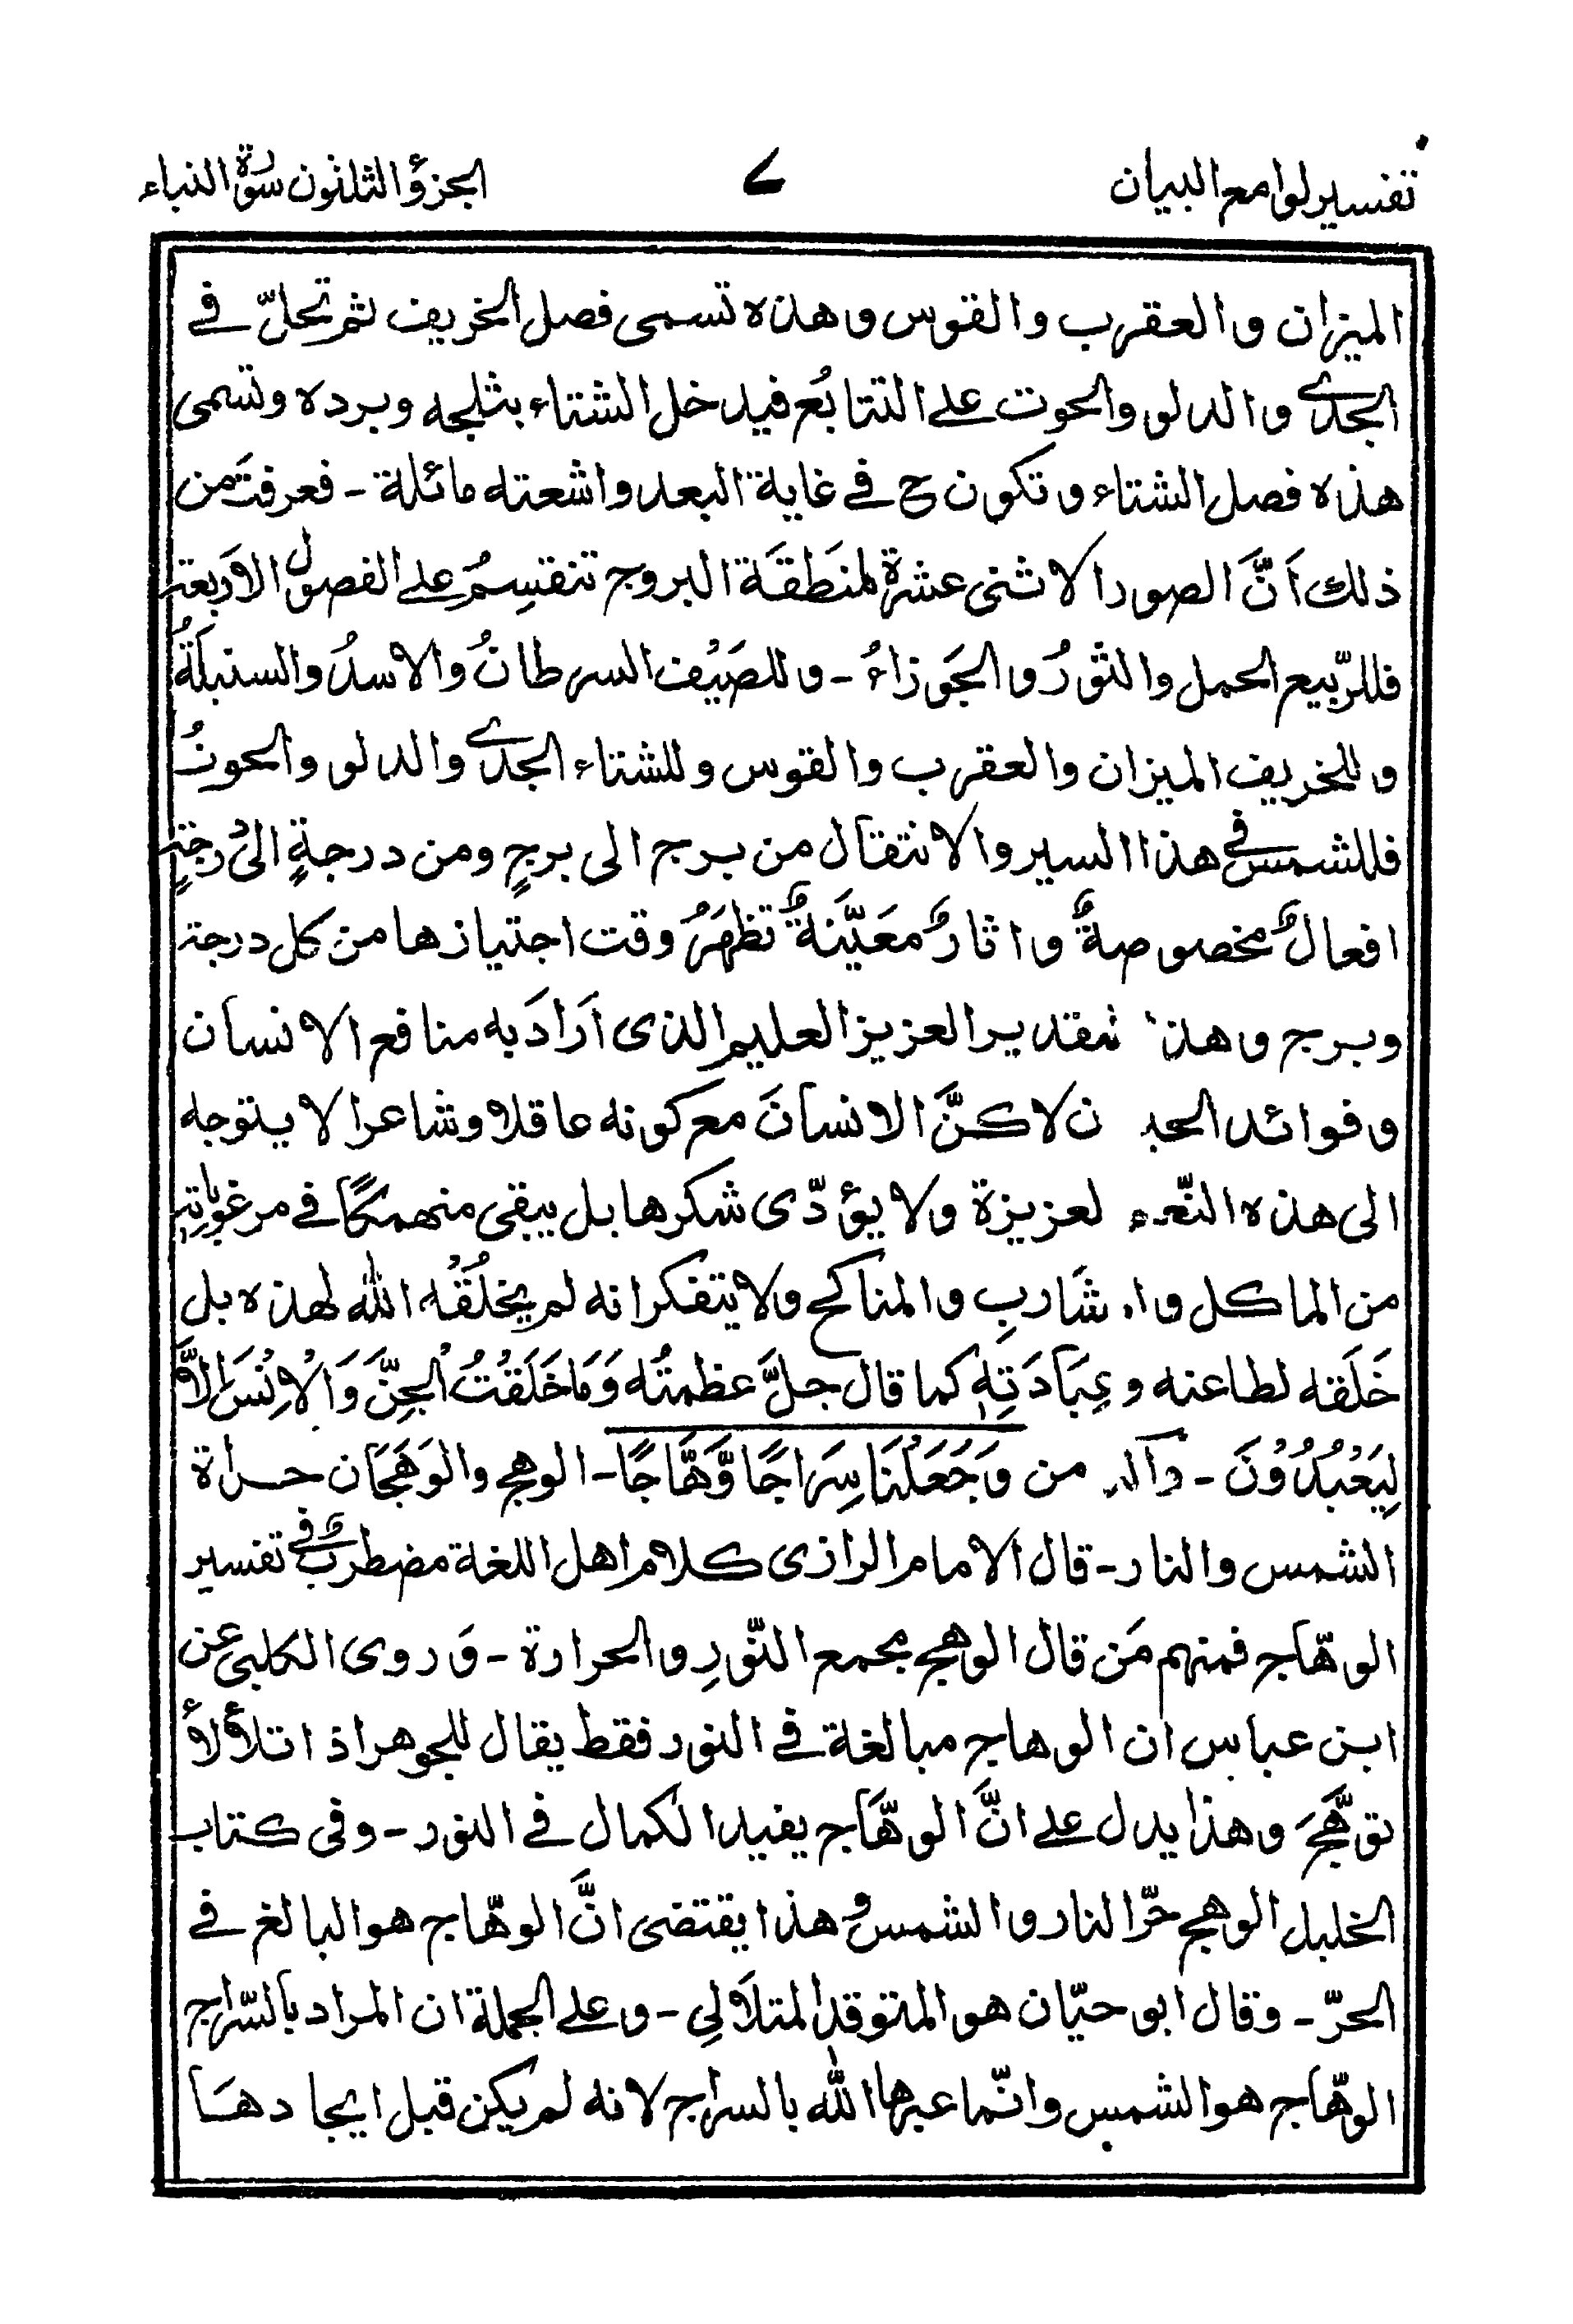 تفسير لوامع البيان ٧ الجزؤ الثلثون سورة النباء
الميزان والعقرب والقوس وهذه تسمى فصل الخريف ثم تحلّ فے
الجدے والدلو والحوت علے التتابُع فيدخل الشتاء بثلجه وبرده وتسمى
هذه فصل الشتاء وتكون ح فے غاية البعد واشعته مائلة - فعرفتَ من
ذلك اَنَّ الصور الاثنى عشرة لمنَطقَة البروج تنقسِمُ علے الفصول الاَربعة
فللرّبيع الحمل والثورُ والجَوزاءُ - وللصَيُف السرطانُ والاسدُ والسنبلَةُ
وللخريف الميزان والعقرب والقوس وللشتاء الجدے والدلو والحوتُ
فللشمس فے هذا السير والانتقال من برج الى برجٍ ومن درجةٍ الىٰ درجةٍ
افعالٌ مخصوصةٌ واثارٌ معَيَّنةٌ تظهَرُ وقت اجتيازها من كل درجة
وبرج وهذا تقدير العزيز العليم الذى اَرادَ به منافع الانسان
وفوائد لاكنَّ الانسانَ مع كونه عاقلا وشاعرا لا يتوجه
الى هذه لعزيزة ولا يؤدّى شكرها بل يبقى منهمكًا فے مرغوباتِهٖ
من الماكل شَاربِ والمناكح ولا يتفكر انه لم يخلُقُه الله لهذه بل
خَلَقه لطاعته وعِبَادَتِهٖ كما قال جلَّ عظمتُه وَمَا خَلَقْتُ الْجِنَّ وَالْاِنْسَ اِلَّا
لِيَعْبُدُوْنَ - من وَجَعَلْنَا سِرَاجًا وَّهَّاجًا - الوهج والوَهَجَان حرارة
الشمس والنار - قال الامام الرازى كلام اهل اللغة مضطربٌ فے تفسير
الوهّاج فمنهم مَن قال الوهج مجمع النّورِ والحرارة - وَروى الكلبى عن
ابن عباس ان الوهاج مبالغة فے النور فقط يقال للجوهر اذا تلألأ
توهَّجَ وهذا يدل علے انَّ الوهّاج يفيد الكمال فے النور - وفى كتاب
الخليل الوهج حرّ النار والشمس وهذا يقتضى انَّ الوهّاج هو البالغ فے
الحرّ - وقال ابو حيّان هو المتوقد المتلاَلِي - وعلے الجملة ان المراد بالسّراج
الوهّاج هو الشمس وانّما عبرها الله بالسراج لانه لم يكن قبل ايجادها